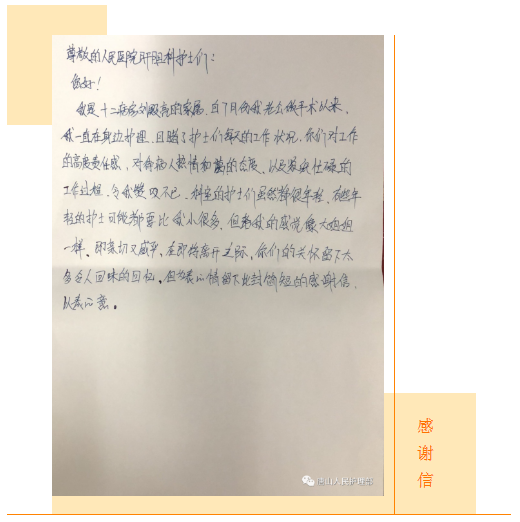 尊敬的人民医院肝胆科护士们：
您好！
我是十二病房刘殿亮的家属，自7月份我老公做手术以来，
我一直在身边护理，目睹了护士们每天的工作状况，你们对工作
的高度责任感，对待病人热情和蔼的态度，以及忙碌的
工作过程，令我赞叹不已，科室的护士们虽然都很年轻，有些年
轻的护士可能都要比我小很多，但给我的感觉像大姐姐
一样，即亲切又威严，在即将离开之际，你们的关怀留下太
多令人回味的回忆，但为表心情留下此封简短的感谢信，
以表心意。
感
谢
信